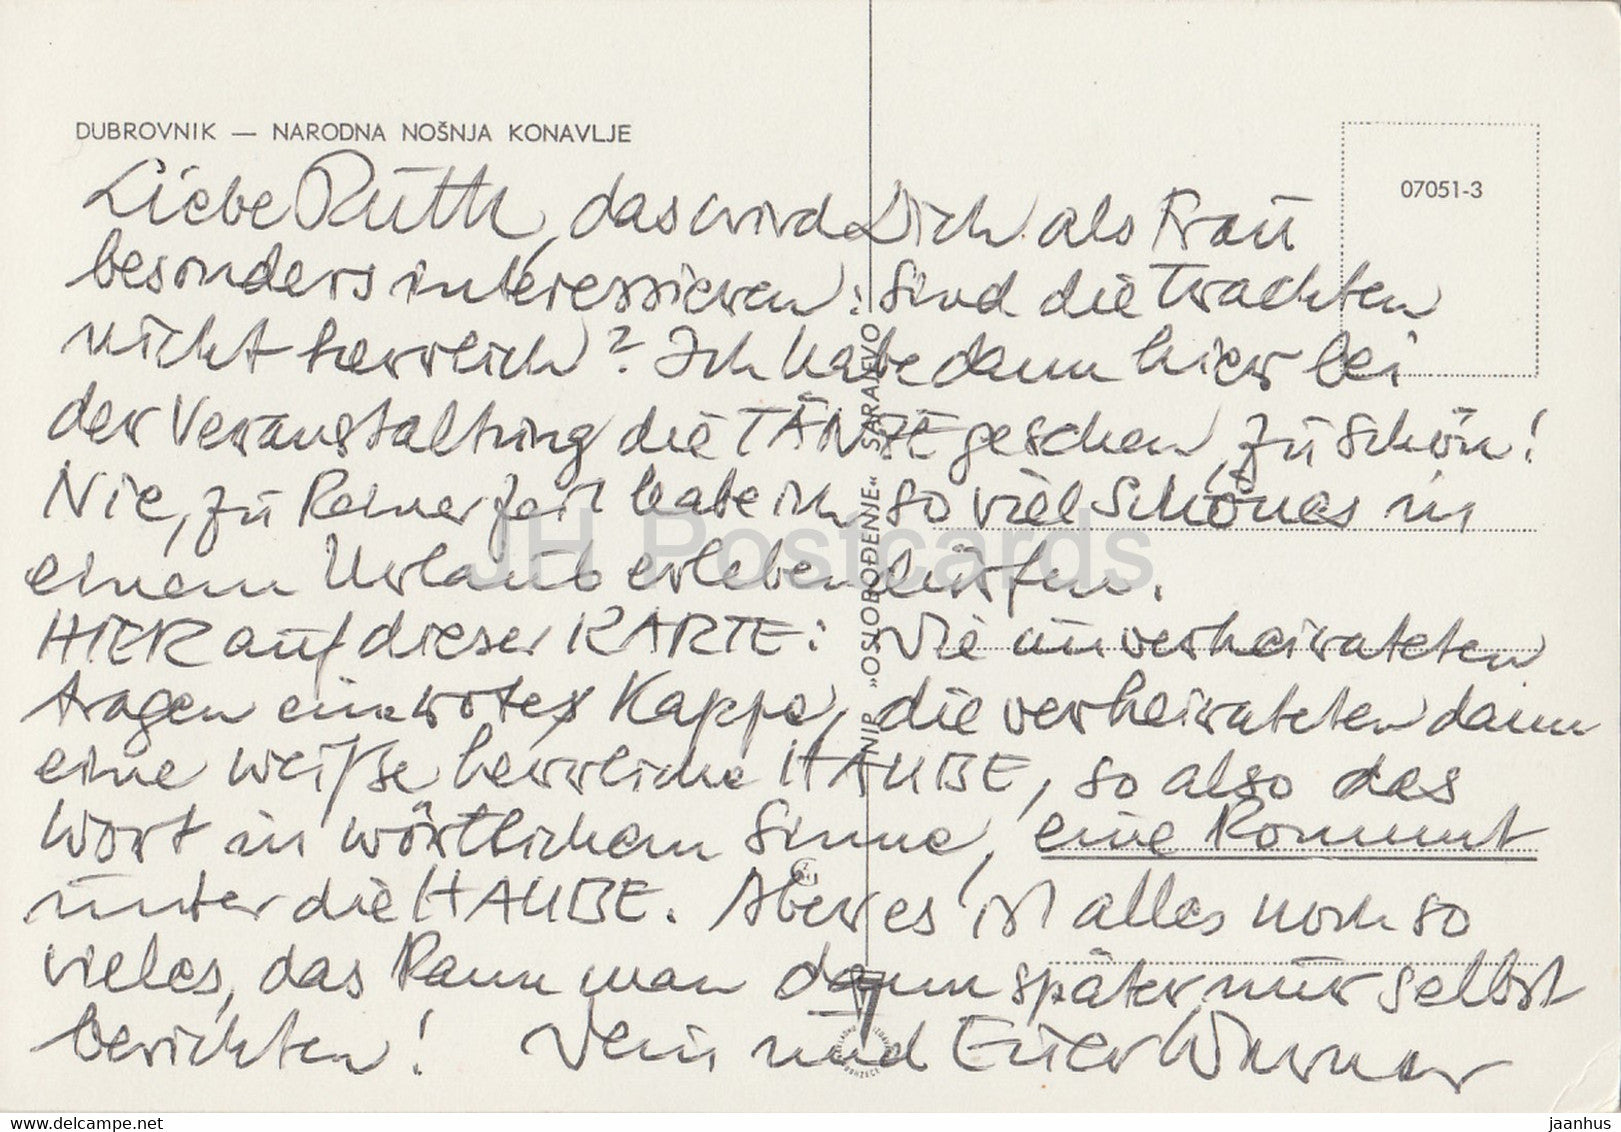 DUBROVNIK — NARODNA NOŠNJA KONAVLJE
07051-3
Liebe Ruth, das wird Dich als Frau
besonders interessieren: sind die Trachten
nicht herrlich? Ich habe dann hier bei
der Veranstaltung die TÄNZE gesehen, zu schön!
Nie, zu keiner Zeit habe ich so viel Schönes in
einem Urlaub erleben dürfen.
HIER auf dieser KARTE: Die unverheirateten
tragen eine rote Kappe, die verheirateten dann
eine weiße herrliche HAUBE, so also das
Wort in wörtlichem Sinne, eine kommt
unter die HAUBE. Aber es ist alles noch so
vieles, das kann man dann später nur selbst
berichten! Dein und Euer Werner
NIP „OSLOBOĐENJE“ SARAJEVO
JH Postcards
www.delcampe.net
jaanhus